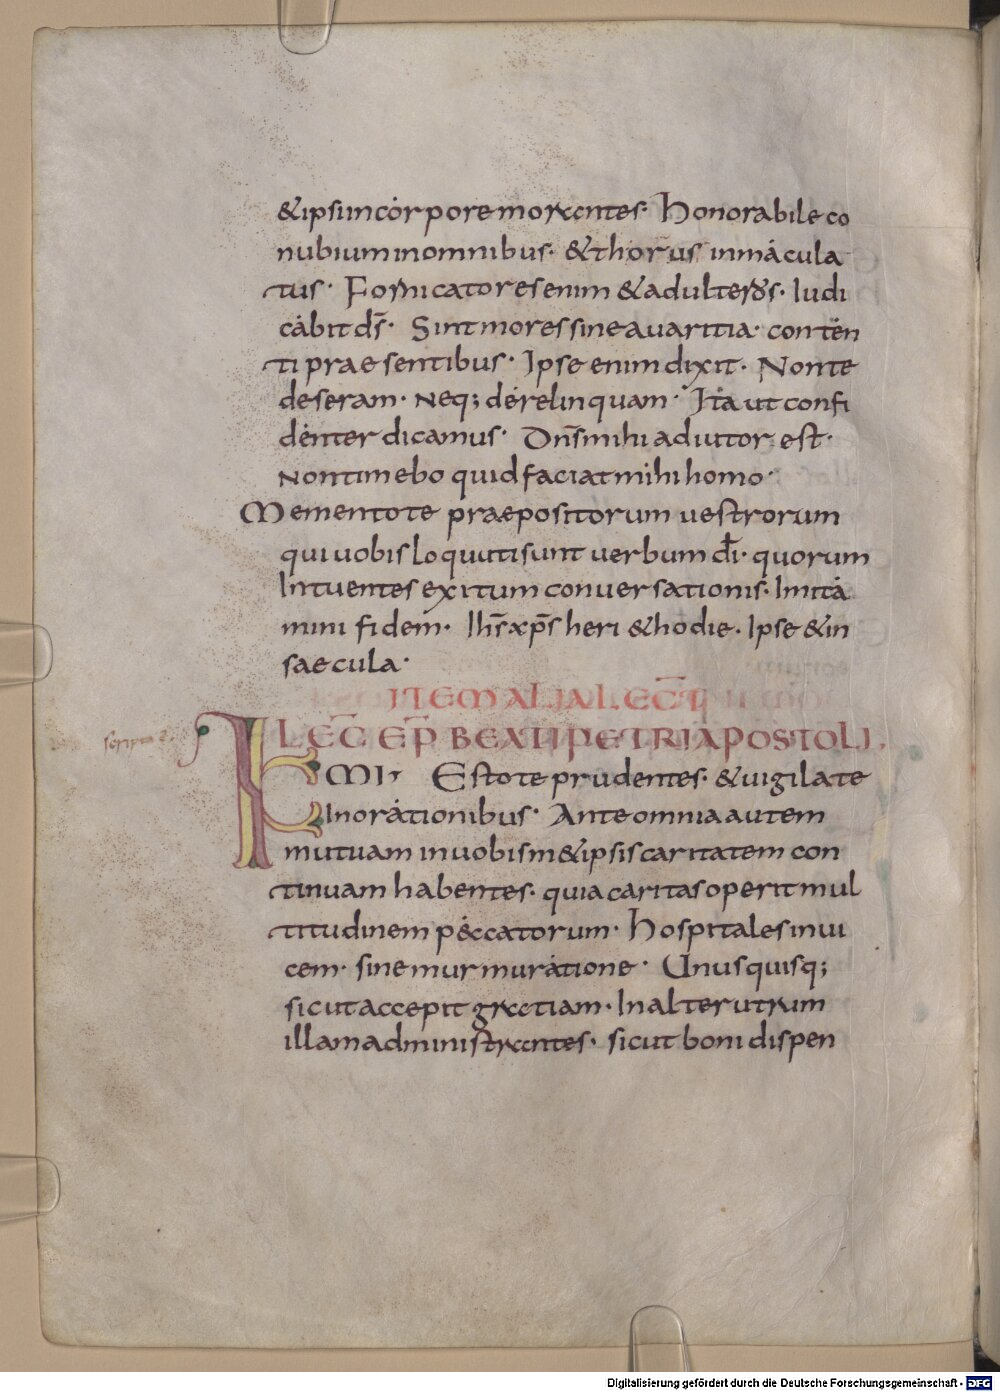 &ipsi incorpore morantes· Honorabile co
nubium inomnibus· &thorus inmacula
tus· Fornicatores enim &adulteros· Iudi
cabit ds̄· Sint mores sine auaritia· conten
ti prae sentibus· Ipse enim dixit· Non te
deseram· Neq; derelinquam· Ita ut confi
denter dicamus· Dn̄s mihi adiutor est·
Non timebo quid faciat mihi homo·
Mementote praepositorum uestrorum
qui uobis loquuti sunt uerbum dī· quorum
Intuentes exitum conuersationis· Imita
mini fidem· Ihs̄ xp̄s heri &hodie· Ipse &in
saecula·
ITEM ALIA LECT̄
LEC̄ EP̄ BEATI PETRI APOSTOLI·
KMI Estote prudentes· &uigilate
Inorationibus· Ante omnia autem
mutuam inuobism&ipsis caritatem con
tinuam habentes· quia caritas operit mul
titudinem peccatorum· Hospitales inui
cem· sine murmuratione· Unusquisq;
sicut accepit gratiam· In alterutrum
illam administrantes· sicut boni dispen
Digitalisierung gefördert durch die Deutsche Forschungsgemeinschaft - DFG